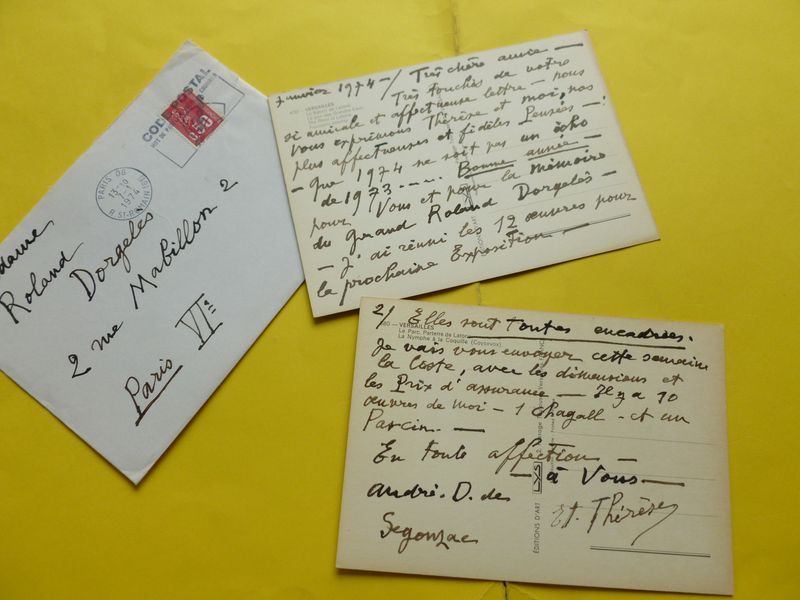 CODE POSTAL
0.50
PARIS 06
13-18
1974
R. ST-ROMAIN (6E)
Madame
Roland
Dorgelès
2 rue Mabillon 2
Paris VIe
Janvier 1974 — / Très chère amie —
VERSAILLES
Très touchés de votre
si amicale et affectueuse lettre — nous
vous exprimons Thérèse et moi, nos
plus affectueuses et fidèles Pensées — :
— que 1974 ne soit pas un écho
de 1973 . — . . Bonne année —
pour Vous et pour la mémoire
du grand Roland Dorgelès —
— J'ai réuni les 12 œuvres pour
la prochaine Exposition —
2/ Elles sont toutes encadrées.
80 — VERSAILLES
Le Parc. Parterre de Latone
La Nymphe à la Coquille (Coysevox)
Je vais vous envoyer cette semaine
la liste, avec les dimensions et
les Prix d'assurance — Il y a 10
œuvres de moi — 1 Chagall — et un
Pascin. —
En toute affection —
— à Vous —
André. D. de
Segonzac
et. Thérèse
EDITIONS D'ART
LYS